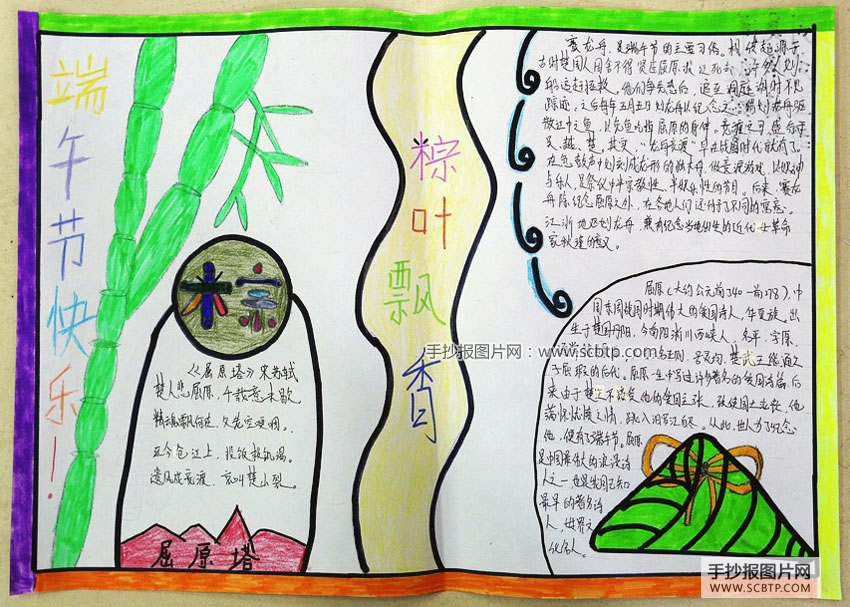 端午节快乐！
粽
《屈原塔》宋苏轼
楚人悲屈原，千载意未歇。
精魂飘何处，父老空哽咽。
至今仓江上，投饭救饥渴。
遗风成竞渡，哀叫楚山裂。
屈原塔
粽叶飘香
赛龙舟，是端午节的主要习俗。相传起源于
古时楚国人因舍不得贤臣屈原投江死去，许多人划
船追赶拯救。他们争先恐后，追至洞庭湖时不见
踪迹。之后每年五月五日划龙舟以纪念之。借划龙舟驱
散江中之鱼，以免鱼吃掉屈原的身体。竞渡之习，盛行于
吴、越、楚。其实，“龙舟竞渡”早在战国时代就有了。
在急鼓声中划刻成龙形的独木舟，做竞渡游戏，以娱神
与乐人，是祭仪中半宗教性、半娱乐性的节目。后来，赛龙
舟除纪念屈原之外，在各地人们还付予了不同的寓意。
江浙地区划龙舟，兼有纪念当地出生的近代女革命
家秋瑾的意义。
屈原（大约公元前340—前278），中
国东周战国时期伟大的爱国诗人，华夏族。出
生于楚国丹阳，今南阳淅川西峡人，名平，字原，
正则，
子屈瑕的后代。屈原一生中写过许多著名的爱国诗篇，后
来由于楚王不接受他的爱国主张，致使国土丧失，他
满怀忧愤之情，跳入汨罗江自尽。从此，世人为了纪念
他，便有了端午节。屈原
是中国最伟大的浪漫诗
人之一，也是我国已知
最早的著名诗
人，世界文
化名人。
手抄报图片网：www.scbtp.com
手抄报图片网
WWW.SCBTP.COM